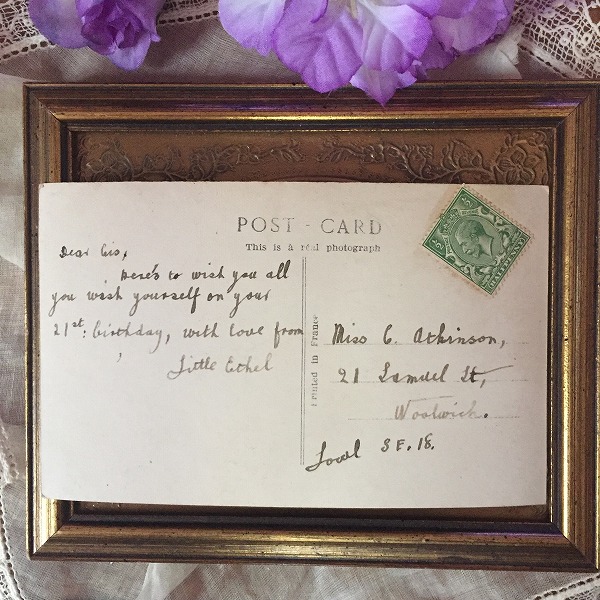 POST - CARD
This is a real photograph
Dear Cis,
Here's to wish you all
you wish yourself on your
21st: birthday, with love from
Little Ethel
Printed in France
Miss C. Atkinson,
21 Samuel St,
Woolwich.
Local S.E. 18.